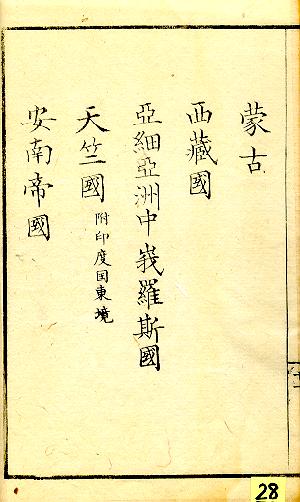 蒙古
西藏國
亞細亞洲中峩羅斯國
天竺國 附印度国東境
安南帝國
28